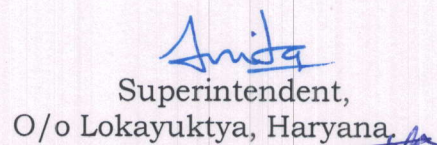 Anita
Superintendent,
O/o Lokayuktya, Haryana